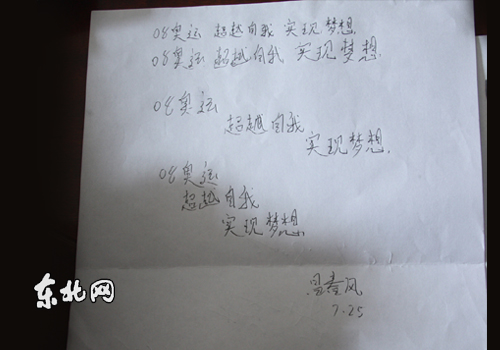 08奥运 超越自我 实现梦想
08奥运 超越自我 实现梦想
08奥运
超越自我
实现梦想
08奥运
超越自我
实现梦想
风
7.25
东北网